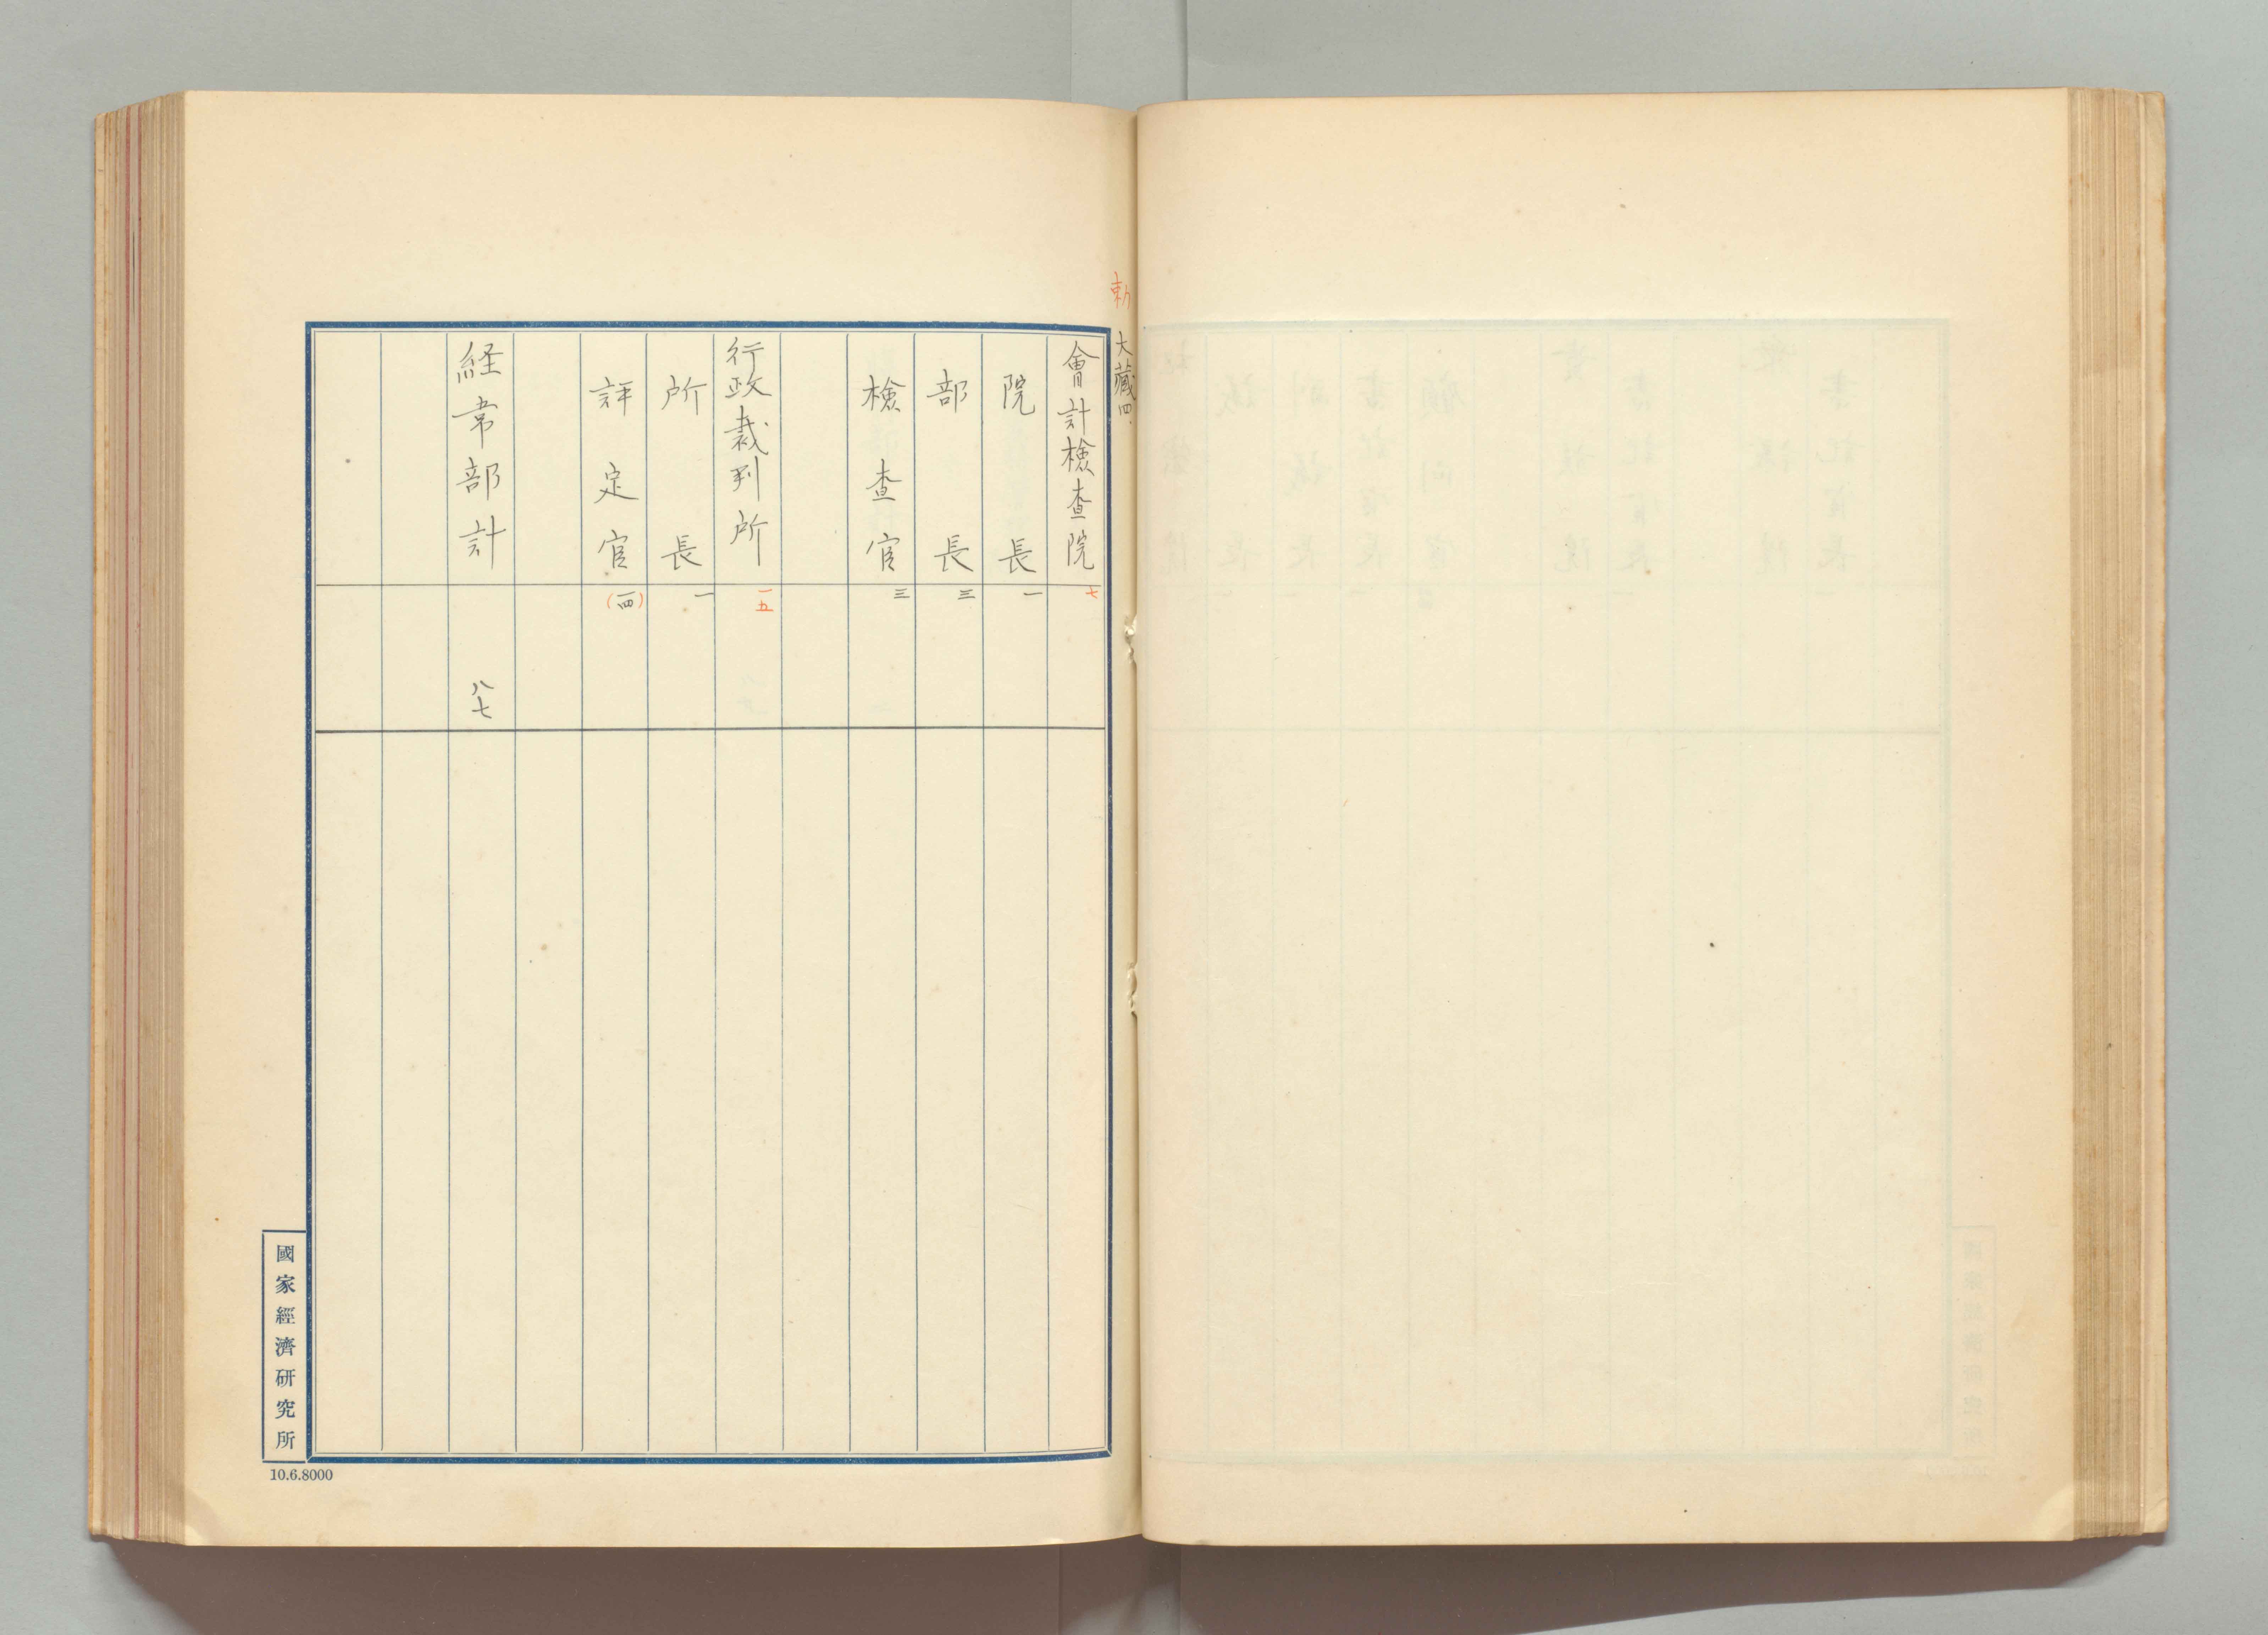 勅
大藏四
會計檢查院 七
院長 一
部長 三
檢查官 三
行政裁判所 一五
所長 一
評定官 (一四)
経常部計 八七
國家經濟研究所
10.6.8000